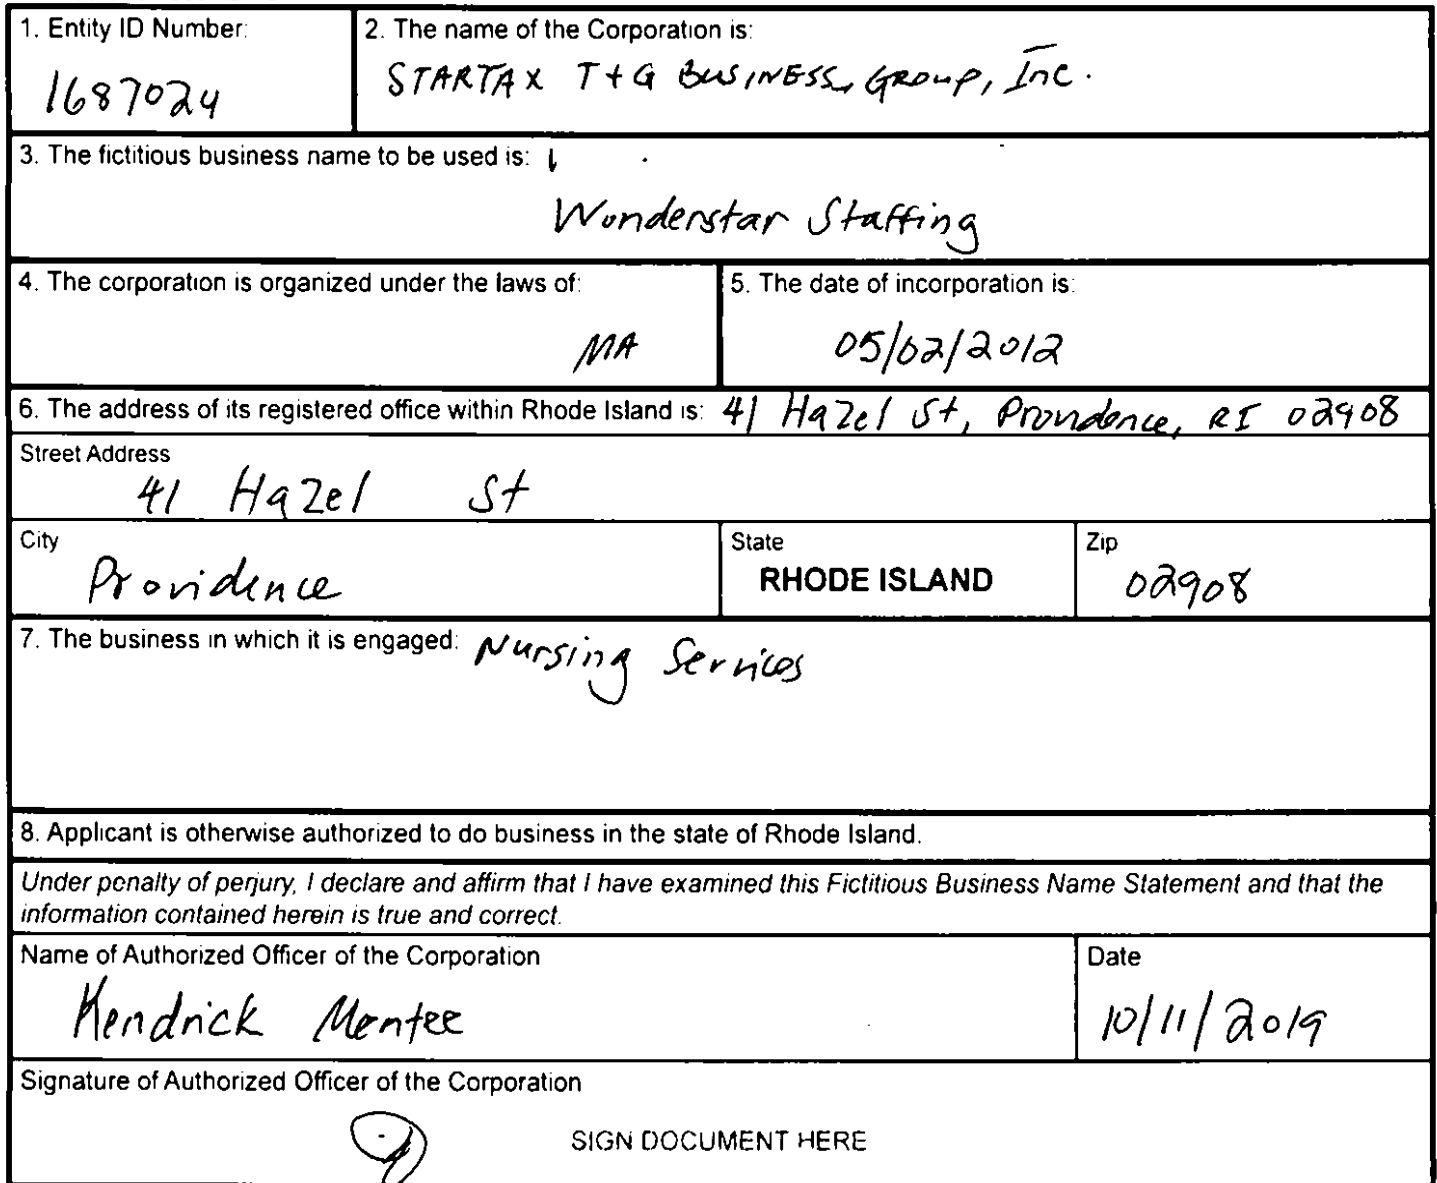 1. Entity ID Number:
1687024
2. The name of the Corporation is:
STARTAX T+G BUSINESS, GROUP, Inc.
3. The fictitious business name to be used is:
Wonderstar Staffing
4. The corporation is organized under the laws of:
MA
5. The date of incorporation is:
05/02/2012
6. The address of its registered office within Rhode Island is: 41 Hazel St, Providence, RI 02908
Street Address
41 Hazel St
City
Providence
State
RHODE ISLAND
Zip
02908
7. The business in which it is engaged: Nursing Services
8. Applicant is otherwise authorized to do business in the state of Rhode Island.
Under penalty of perjury, I declare and affirm that I have examined this Fictitious Business Name Statement and that the
information contained herein is true and correct.
Name of Authorized Officer of the Corporation
Kendrick Mentee
Date
10/11/2019
Signature of Authorized Officer of the Corporation
SIGN DOCUMENT HERE